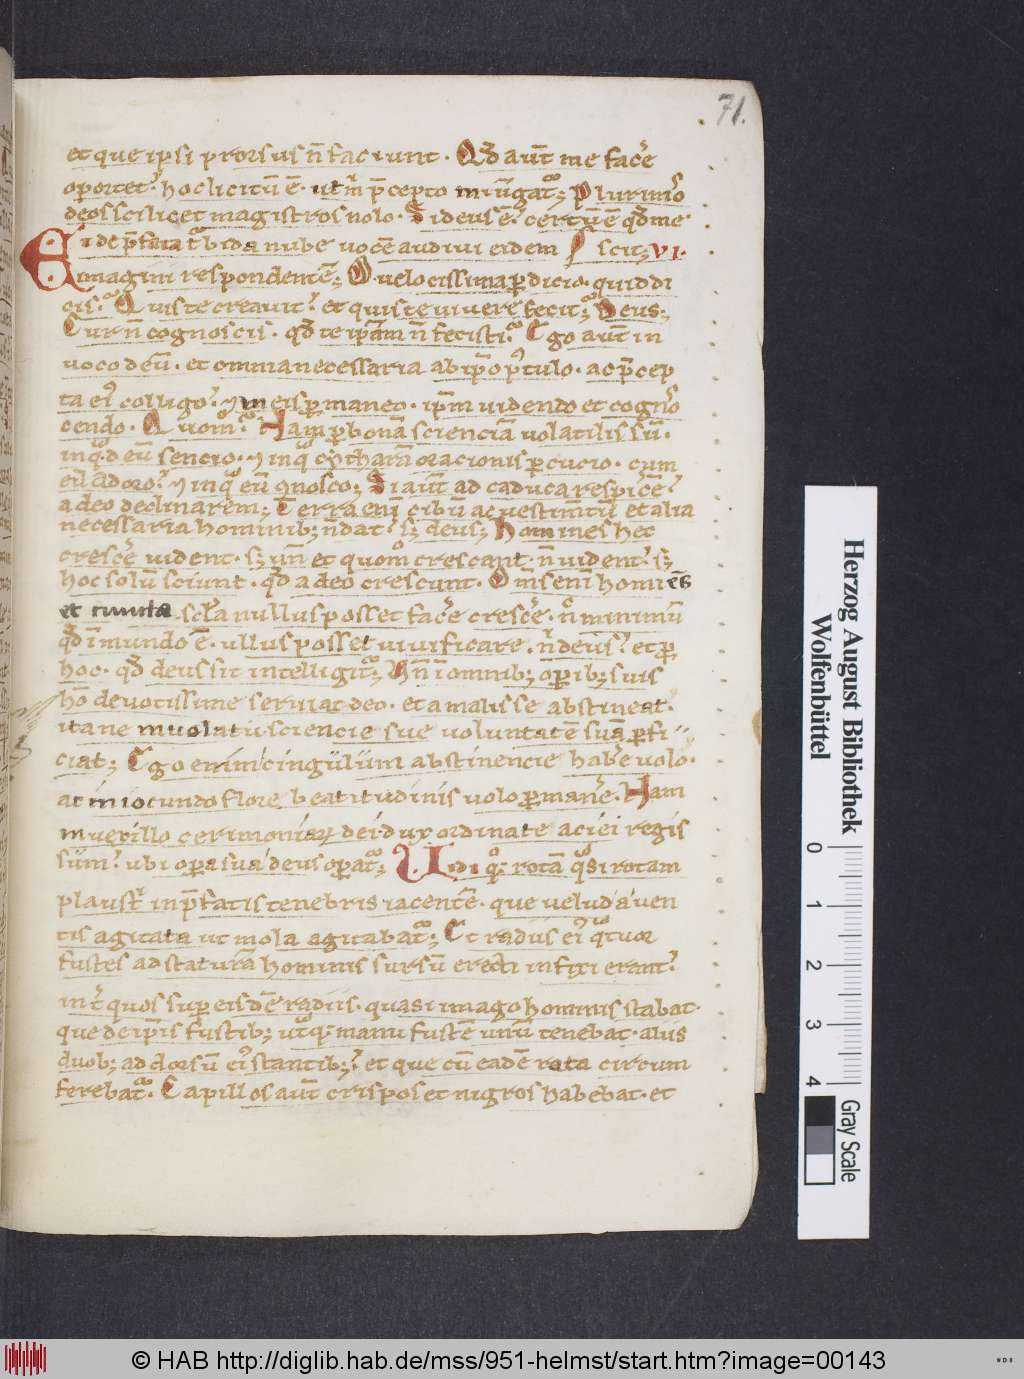 71.
et que ipsi prorsus n̄ faciunt. Qd̄ aut̄ me fac̄e
oportet. hoc licitū ē. ut m̄ p̄cepto iniūgat᷑; Plurimos
deos scilicet magistros nolo. Si deus ē. cert uē qd̄ me.
Et de p̄fata t᷑bida nube uocē audiui eidem scit; VI.
imagini respondentē; O uelocissima p̱dicio. quid di
cis. Quis te creauit. et quis te uiuere fecit; Deus;
Cur n̄ cognoscis. qd̄ te ip̄am n̄ fecisti. Ego aut̄ in
uoco deū. et omnia necessaria ab ip̄o p̱tulo. ac p̄cep
ta ei᷒ colligo. ⁊ in eis p̱maneo. ip̄m uidendo et cogno
cendo. Quom̊. Nam p̱ bonā scienciā uolatilis sū.
inq̄. deū sencio. ⁊ inq̄ cytharā oracionis p̱cucio. cum
eū adoro. ⁊ inq̄ eū ꝯnosco; Si aut̄ ad caduca respic̄e.
a deo declinarem; Terra eni᷒ cibū ac uestimtū et alia
necessaria hominib; n̄ dat. s; deus; Homines hec
cresc̄e uident. s; un̄ et quom̊ crescant. n̄ uident. s;
hoc solū sciunt. qd̄ a deo crescunt. Om̄s eni homīes
et cuncta scl̄a nullus posset fac̄e cresc̄e. n̊ minimū
qd̄ ī mundo ē. ullus posset uiuificare. n᷒ deus. et p̱
hoc. qd̄ deus sit intelligit᷑; Un̄ ī omnib; op̱ib; suis
hō deuotissime seruiat deo. et a malis se abstineat.
ita ne in uolatu sciencie sue uoluntatē suā p̱fi
ciat; Ego enim cingulum abstinencie hab̄e uolo.
at in iocundo flore beatitudinis uolo p̱man̄e. Nam
in uexillo cerimoniaꝝ dei dux ordinate aciei regis
sum. ubi op̱a sua deus op̱at᷑; Vidi q̊; rotā q̄si rotam
plaust̄ in p̄fatis tenebris iacentē. que velud a uen
tis agitata ut mola agitabat᷑; Et radiis ei᷒ q̄tuor
fustes ad staturā hominis sursū erecti infixi erant.
int̄ quos sup̱ eisdē radiis. quasi imago hominis stabat.
que de ip̄is fustib; ut̄q; manu fustē unū tenebat. aliis
duob; ad dorsū ei᷒ stantib;. et que cū eadē rota circum
ferebat᷑. Capillos aut̄ crispos et nigros habebat. et
Herzog August Bibliothek
Wolfenbüttel
0 1 2 3 4
Gray Scale
© HAB http://diglib.hab.de/mss/951-helmst/start.htm?image=00143